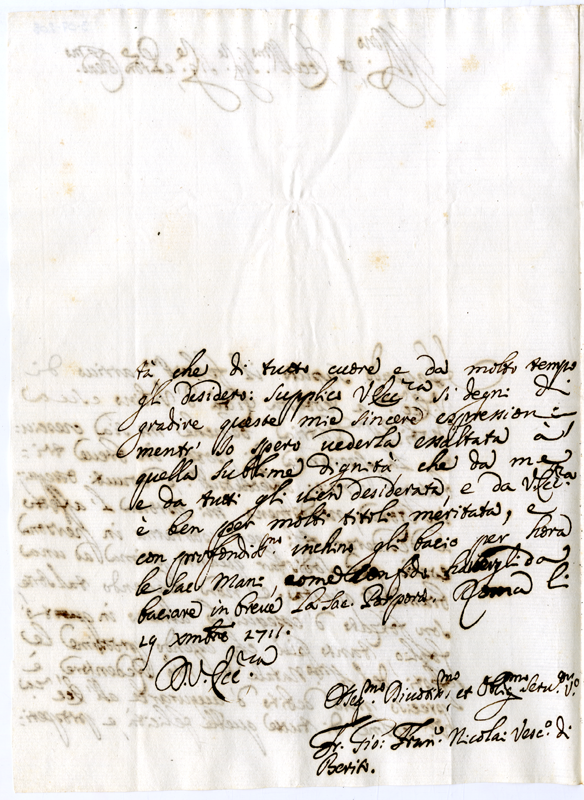 tà che di tutto cuore e da molto tempo
gli desidero: supplico V. Ecc.za si degni di
gradire queste mie sincere espressioni
mentr' Io spero vederla esaltata à
quella sublime dignità che da me
e da tutti gli vien desiderata, e da V. Ecc.za
è ben per molti titoli meritata, e
con profondiss.mo inchino gli bacio per hora
le Sac. Mani, come confido da
baciare in breve La Sac. Porpora. Roma li
29 xmbre 1711.
D. V. Ecc.za
Oss.mo Divotis.mo, et Oblig.mo Serv.e V.o
Fr. Gio: Fran.o Nicolai Vesc.o di
Berito.